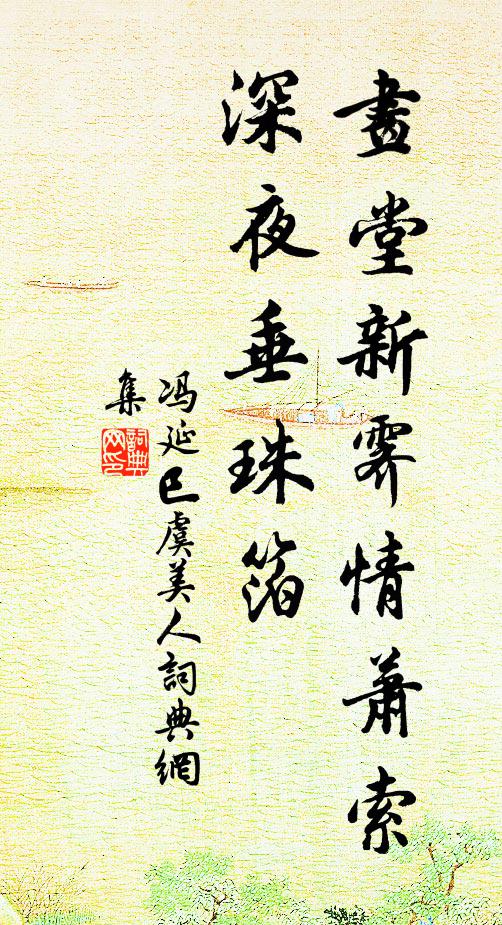 畫堂新霽情蕭索
深夜垂珠箔
冯延巳虞美人詞典網
集
詞典
网印